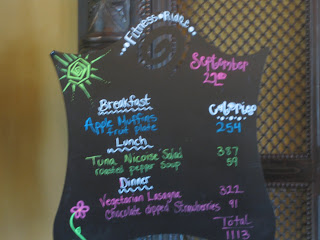 Fitness Ridge
September
22nd
Breakfast Calories
Apple Muffins
fruit plate 254
Lunch
Tuna Nicoise Salad 387
roasted pepper Soup 59
Dinner
Vegetarian Lasagna 322
Chocolate dipped Strawberries 91
Total
1113